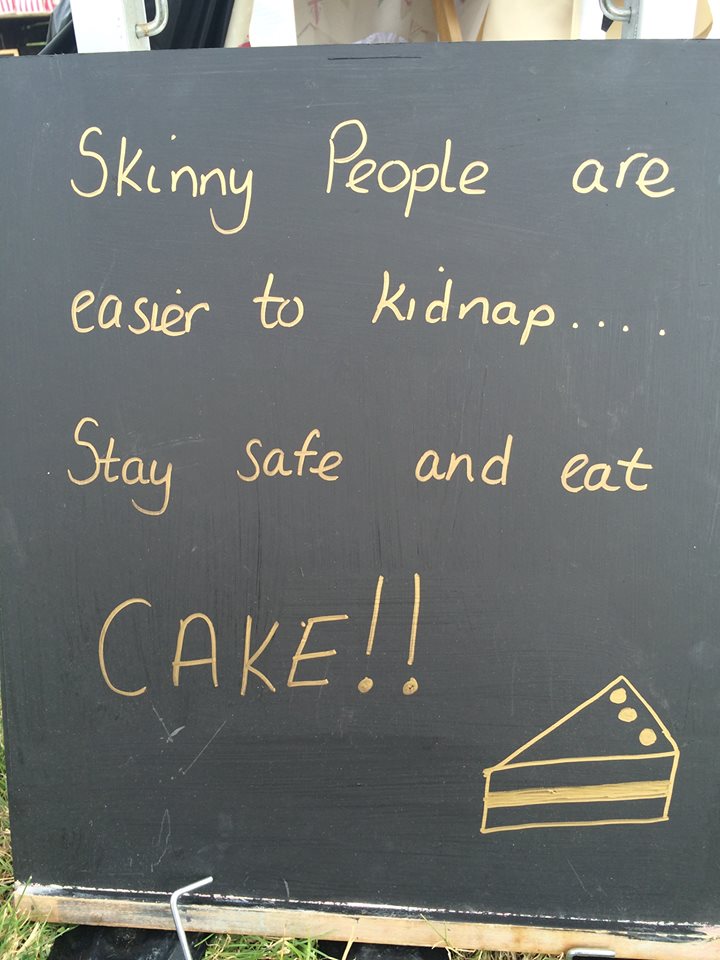 Skinny People are
easier to kidnap....
Stay safe and eat
CAKE!!